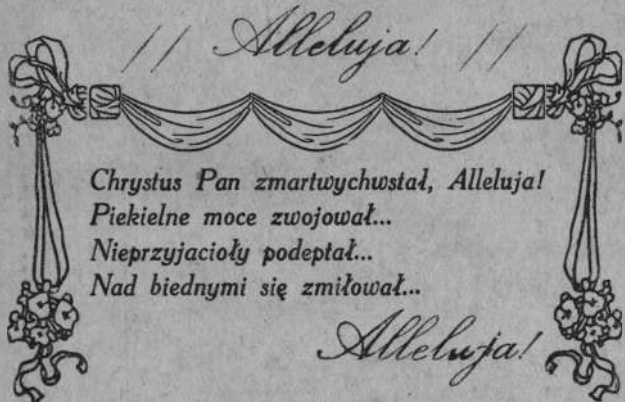 Alleluja!
Chrystus Pan zmartwychwstał, Alleluja!
Piekielne moce zwojował...
Nieprzyjacioły podeptał...
Nad biednymi się zmiłował...
Alleluja!